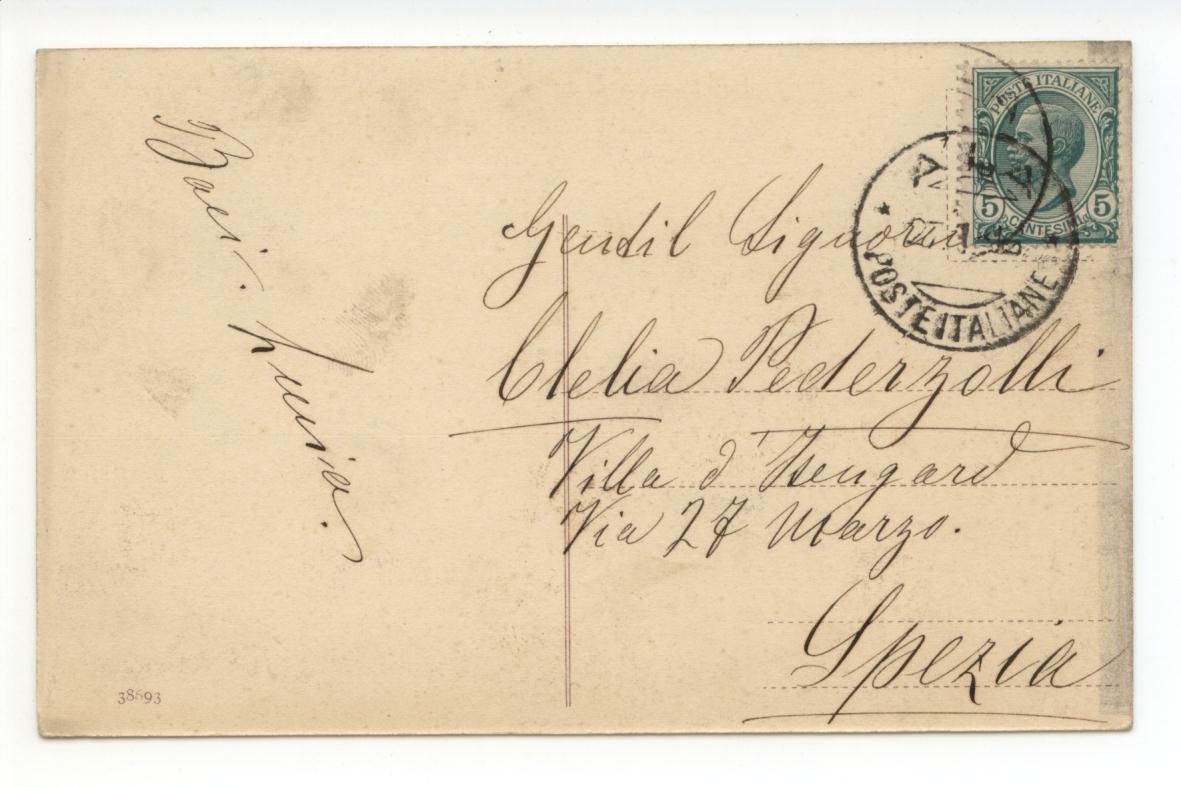 Baci. Luisa.
POSTE ITALIANE
5 CENTESIMI 5
POSTE ITALIANE
Gentil Signorina
Clelia Pederzolli
Villa d'Isengard
Via 27 Marzo.
Spezia
38693